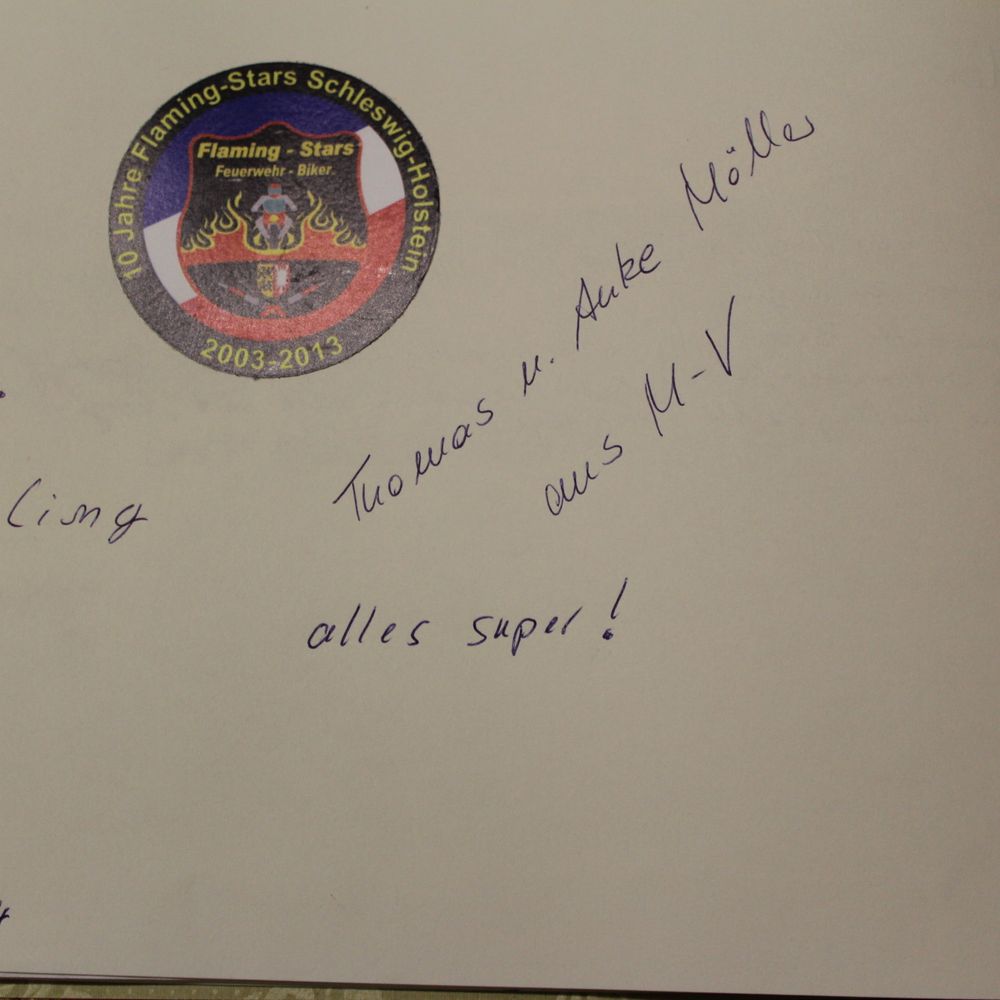 10 Jahre Flaming-Stars Schleswig-Holstein
Flaming - Stars
Feuerwehr - Biker
2003-2013
Thomas u. Anke Möller
aus M-V
alles super!